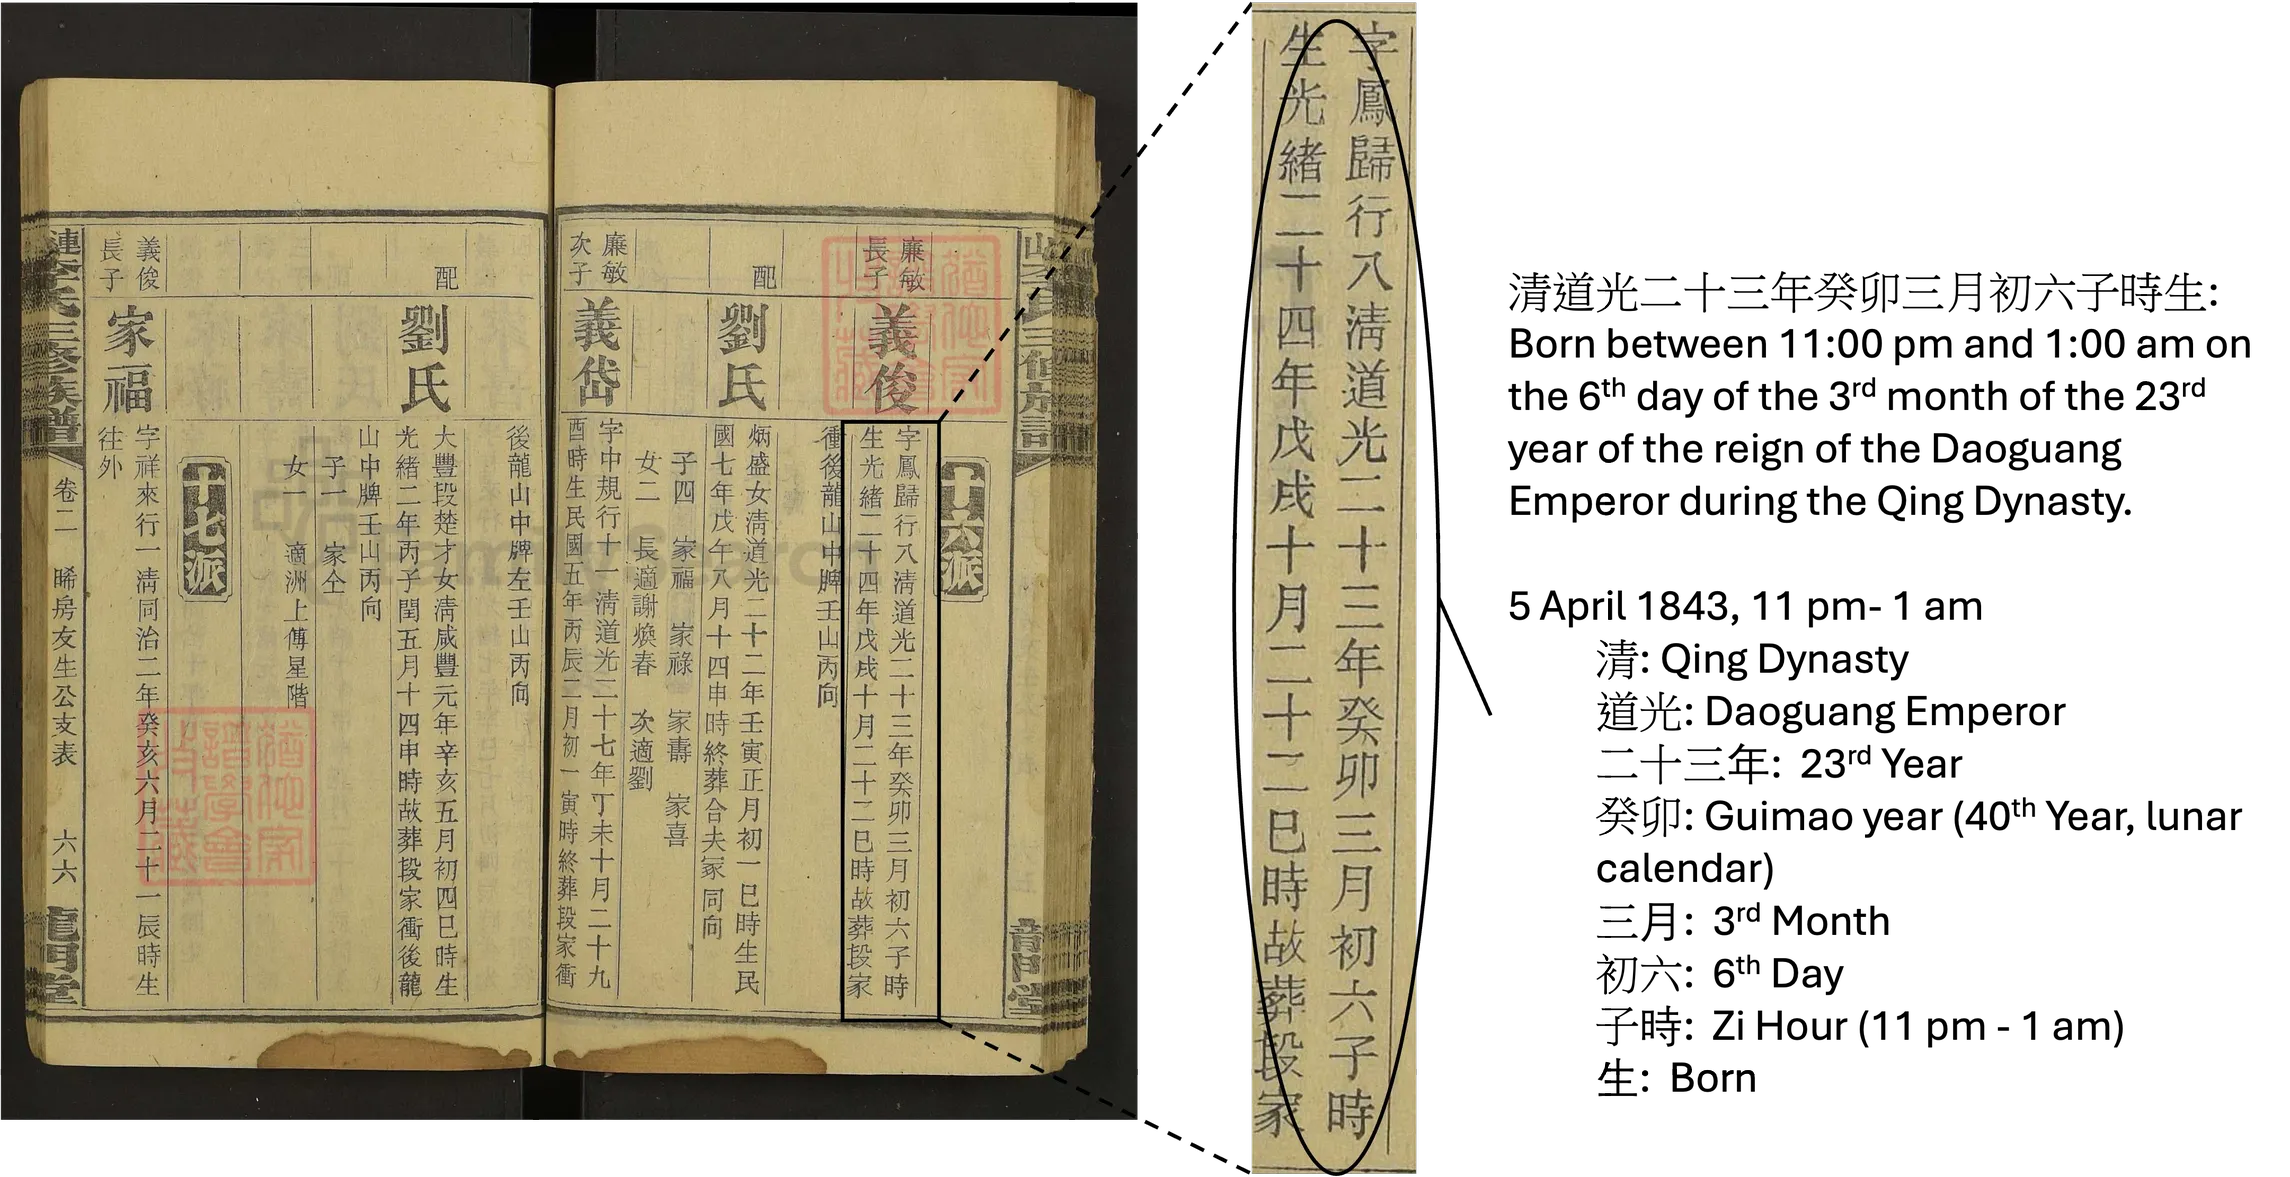 李氏三修族譜
龍門堂
十六派
廉敏
長子
義俊
字鳳歸行八清道光二十三年癸卯三月初六子時
生光緒二十四年戊戌十月二十二巳時故葬段家
衝後龍山中牌壬山丙向
配
劉氏
炳盛女清道光二十二年壬寅正月初一巳時生民
國七年戊午八月十四申時終葬合夫冢同向
子四 家福 家祿 家壽 家喜
女二 長適謝煥春 次適劉
廉敏
次子
義岱
字中規行十一清道光二十七年丁未十月二十九
酉時生民國五年丙辰二月初一寅時終葬段家衝
後龍山中牌左壬山丙向
配
劉氏
大豐段楚才女清咸豐元年辛亥五月初四巳時生
光緒二年丙子閏五月十四申時故葬段家衝後龍
山中牌壬山丙向
子一 家仝
女一 適洲上傅星階
十七派
義俊
長子
家福
字祥來行一清同治二年癸亥六月二十一辰時生
往外
漣李氏三修族譜
卷二 晞房友生公支表 六六
龍門堂
FamilySearch
猶他家
譜學會
字鳳歸行八清道光二十三年癸卯三月初六子時
生光緒二十四年戊戌十月二十二巳時故葬段家
清道光二十三年癸卯三月初六子時生:
Born between 11:00 pm and 1:00 am on
the 6th day of the 3rd month of the 23rd
year of the reign of the Daoguang
Emperor during the Qing Dynasty.
5 April 1843, 11 pm- 1 am
清: Qing Dynasty
道光: Daoguang Emperor
二十三年: 23rd Year
癸卯: Guimao year (40th Year, lunar
calendar)
三月: 3rd Month
初六: 6th Day
子時: Zi Hour (11 pm - 1 am)
生: Born